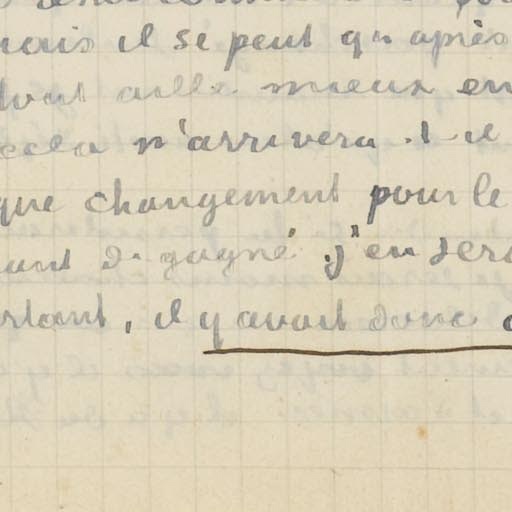 mais il se peut qu après
tout aille mieux en
cela n'arrivera t il
que changement pour le
de gagné j'en sera
il y avait donc